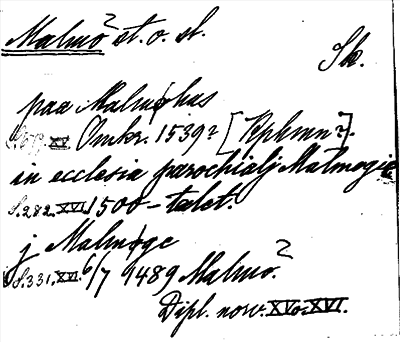 Malmö 2 st. o. sl.
Sk.
paa Malmøhus
XV. Omkr. 1539? [Kphmn?].
in ecclesia parochialj Malmogie
S. 282. XVI. 1500-talet.
j Malmøge
S. 331. XVI. 6/7 1489 Malmö. 2
Dipl. norv. XV o. XVI.